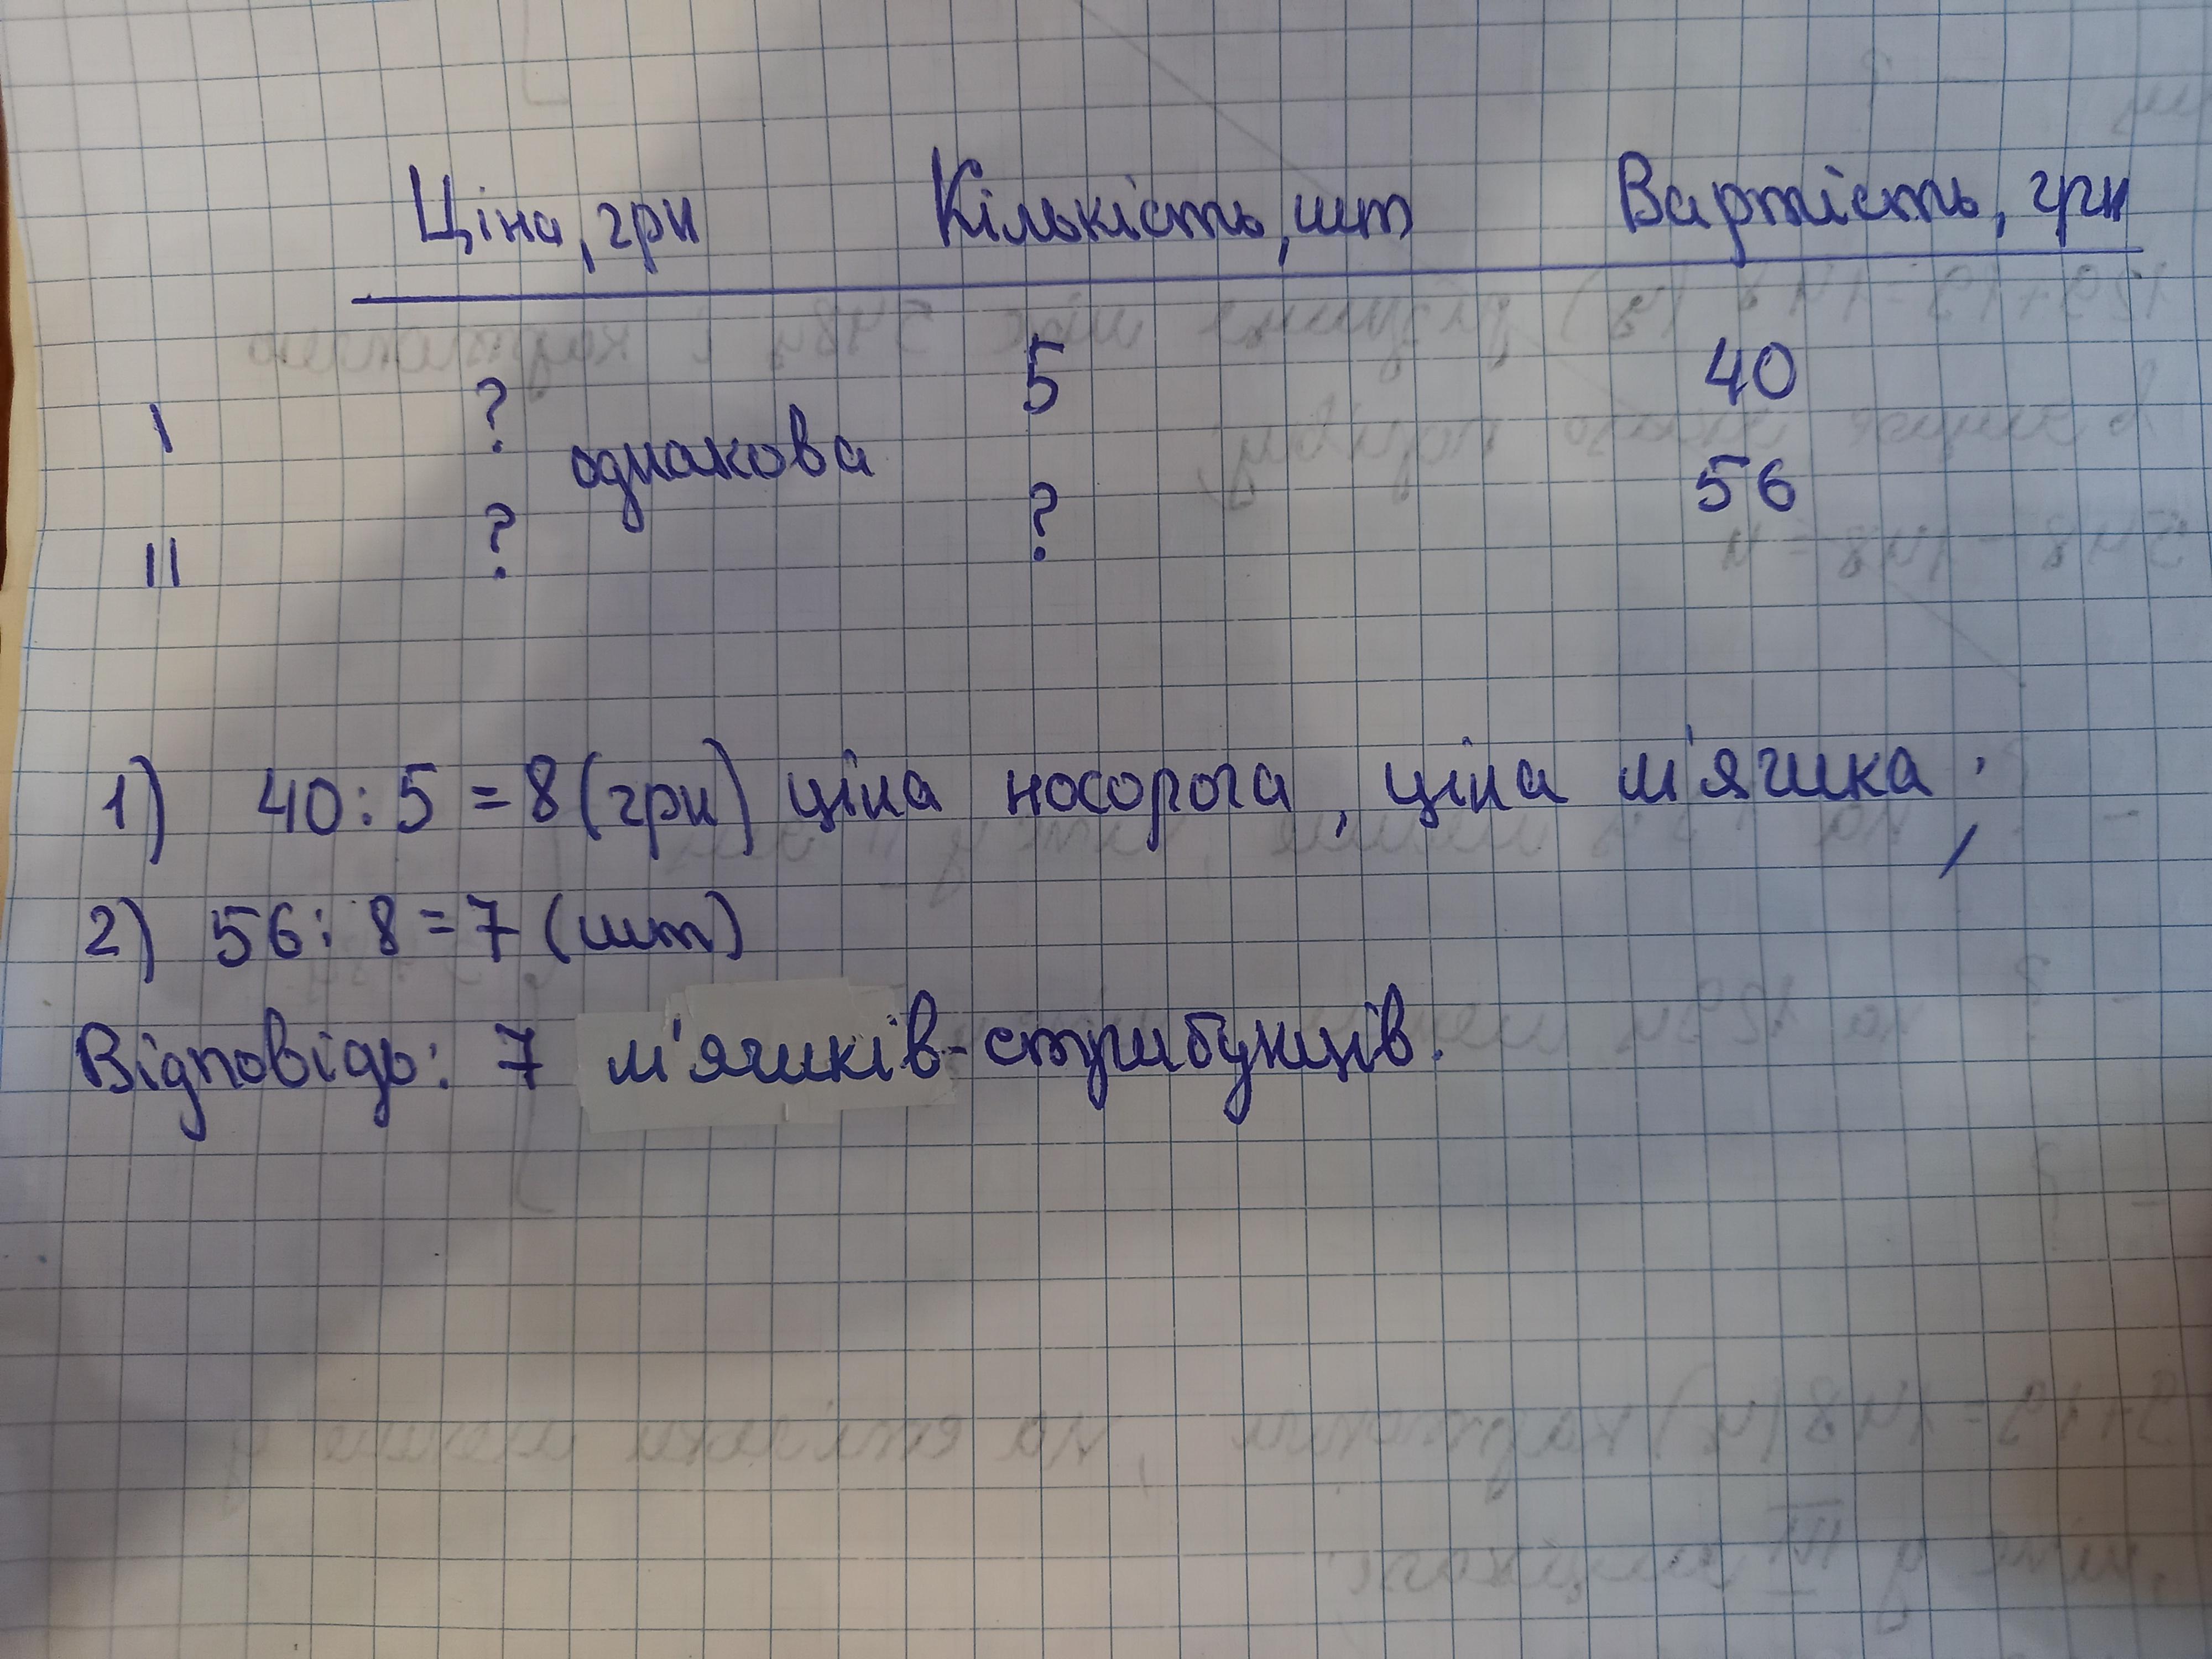 Ціна, грн Кількість, шт Вартість, грн
I ? 5 40
однакова
II ? ? 56
1) 40 : 5 = 8 (грн) ціна носорога, ціна м'ячика;
2) 56 : 8 = 7 (шт)
Відповідь: 7 м'ячиків-стрибунців.